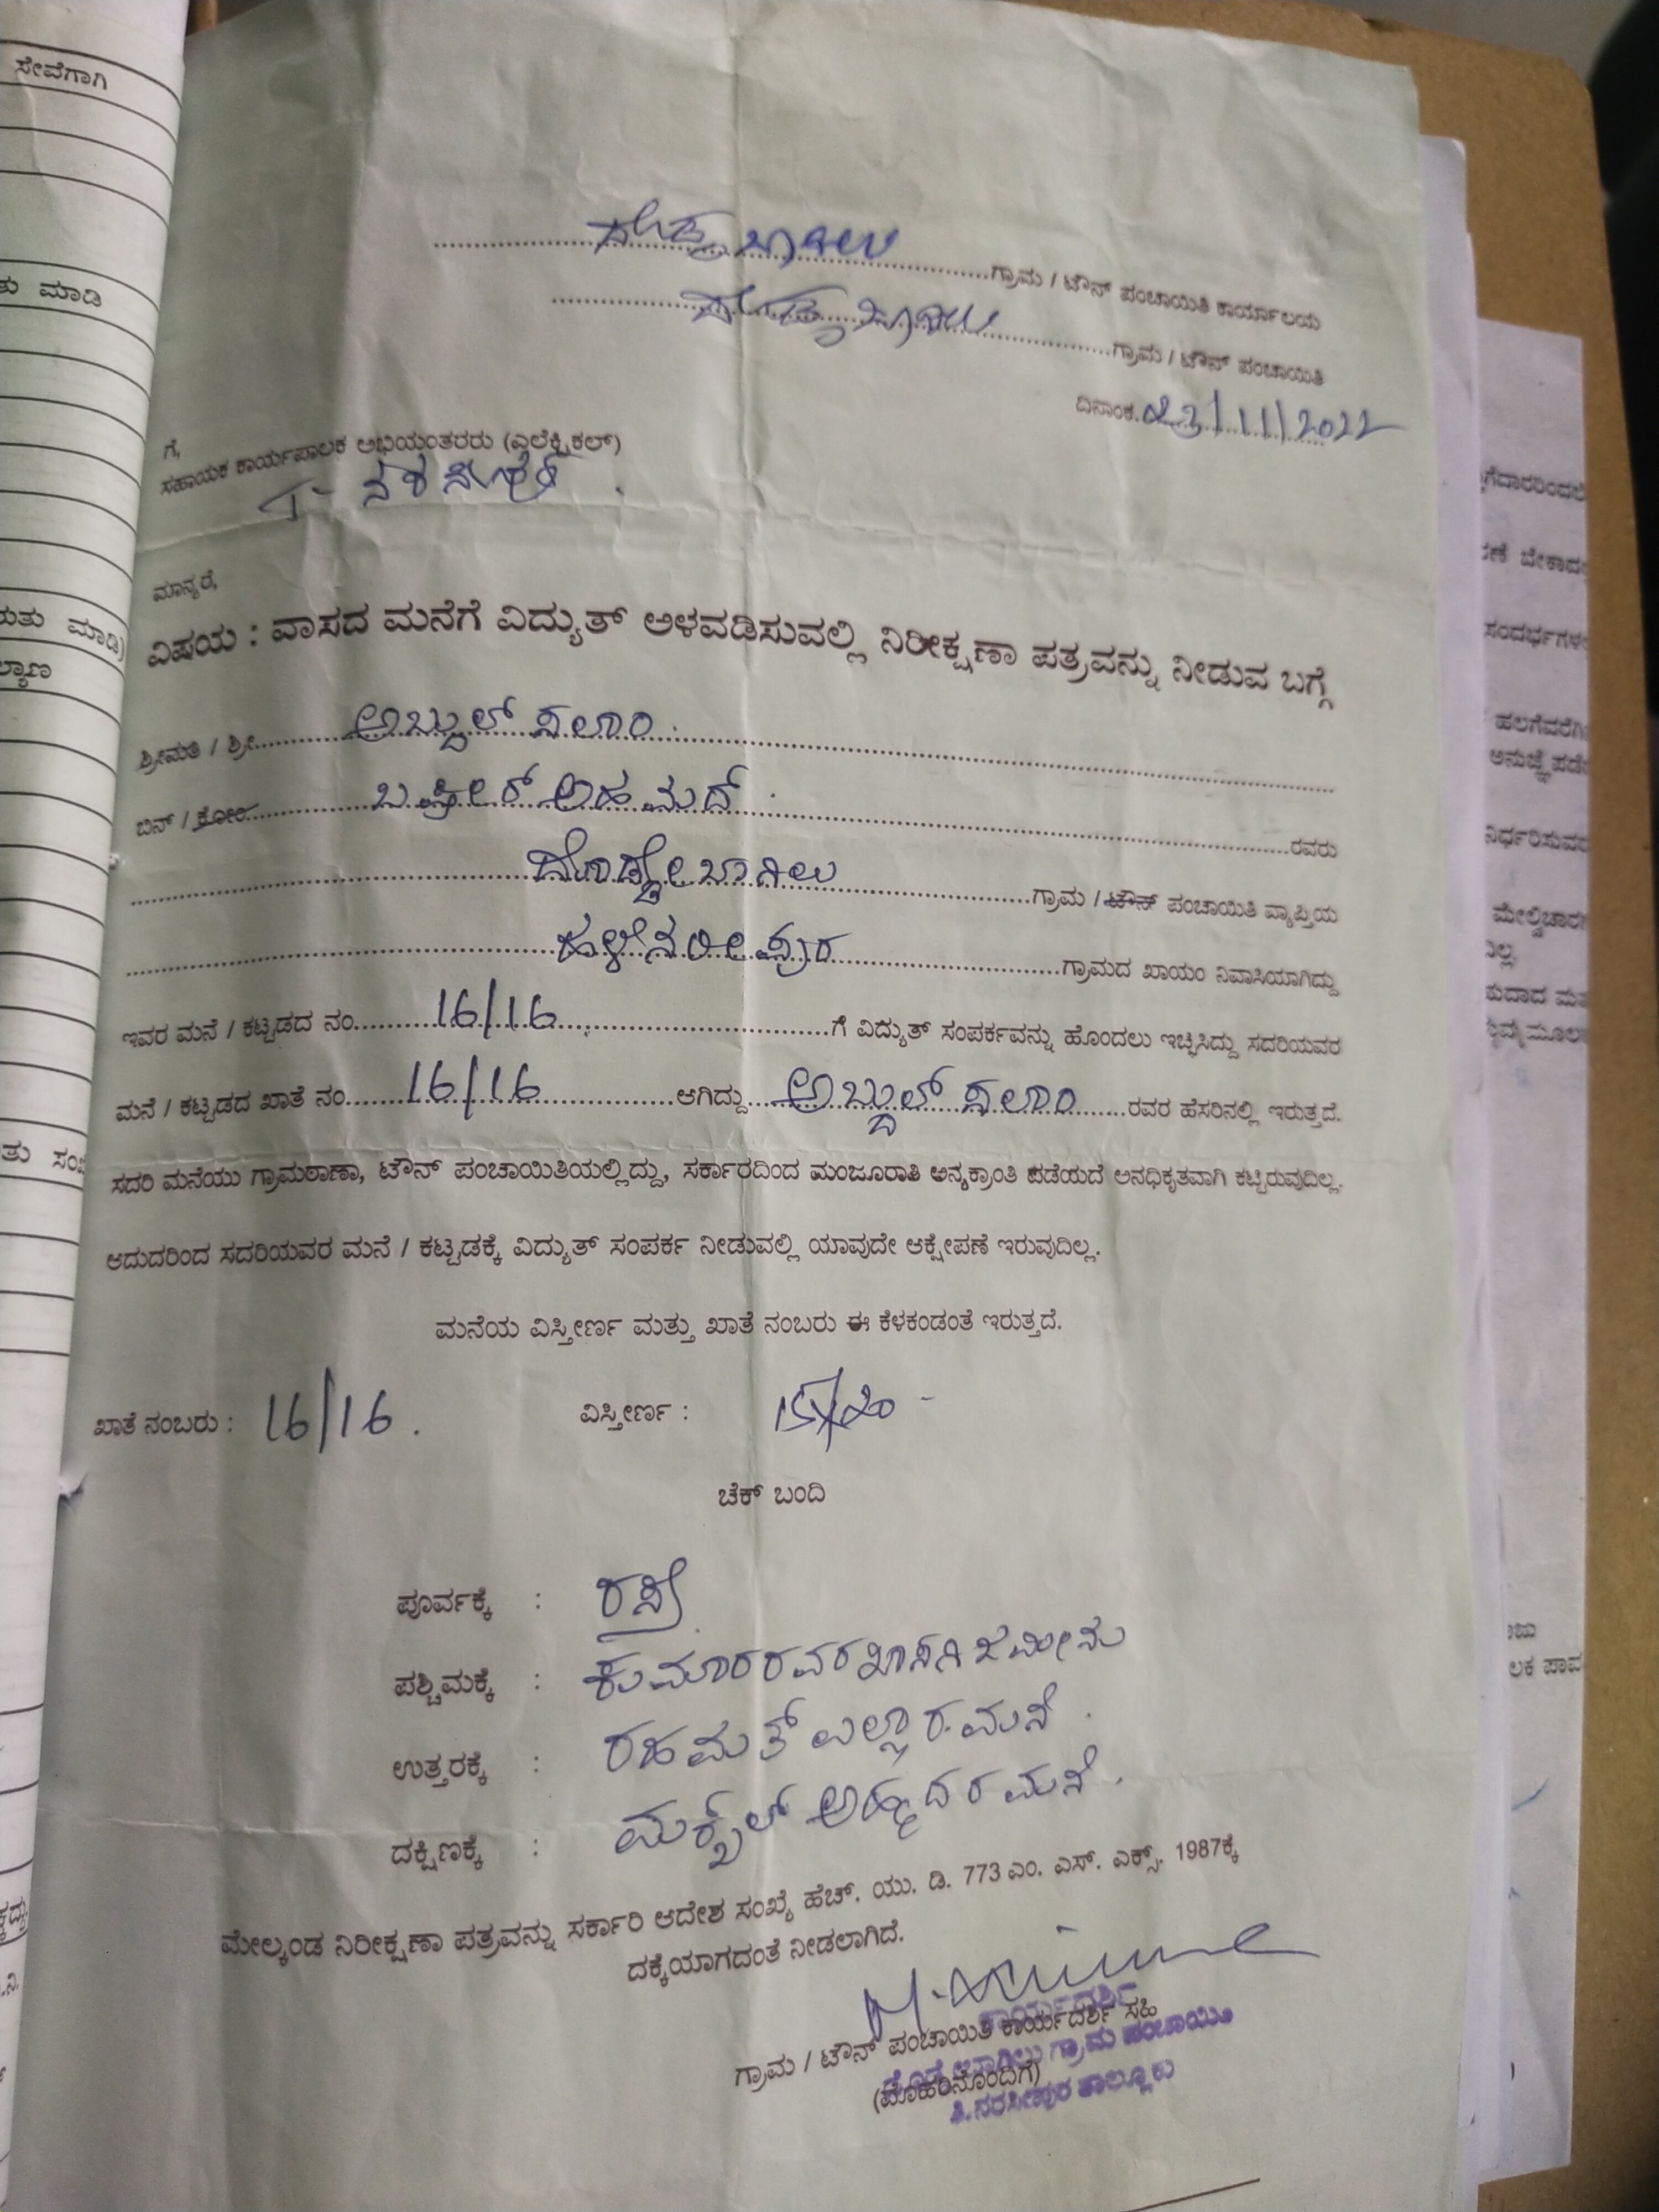 ಸೇವೆಗಾಗಿ
ತು ಮಾಡಿ
ಯತು ಮಾಡಿ)
ಲ್ಯಾಣ
ಗ್ರಾಮ / ಟೌನ್ ಪಂಚಾಯಿತಿ ಕಾರ್ಯಾಲಯ
ಗ್ರಾಮ / ಟೌನ್ ಪಂಚಾಯಿತಿ
ದಿನಾಂಕ. 23/11/2022
ಗೆ,
ಸಹಾಯಕ ಕಾರ್ಯಪಾಲಕ ಅಭಿಯಂತರರು (ಎಲೆಕ್ಟ್ರಿಕಲ್)
ಮಾನ್ಯರೆ,
ವಿಷಯ : ವಾಸದ ಮನೆಗೆ ವಿದ್ಯುತ್ ಅಳವಡಿಸುವಲ್ಲಿ ನಿರೀಕ್ಷಣಾ ಪತ್ರವನ್ನು ನೀಡುವ ಬಗ್ಗೆ
ಶ್ರೀಮತಿ / ಶ್ರೀ ಅಬ್ದುಲ್ ಸಲಾಂ
ಬಿನ್ / ಕೋಂ ಬಷೀರ್ ಅಹಮದ್ ರವರು
ದೊಡ್ಡೇಬಾಗಿಲು ಗ್ರಾಮ / ಟೌನ್ ಪಂಚಾಯಿತಿ ವ್ಯಾಪ್ತಿಯ
ಗ್ರಾಮದ ಖಾಯಂ ನಿವಾಸಿಯಾಗಿದ್ದು
ಇವರ ಮನೆ / ಕಟ್ಟಡದ ನಂ 16/16 ಗೆ ವಿದ್ಯುತ್ ಸಂಪರ್ಕವನ್ನು ಹೊಂದಲು ಇಚ್ಛಿಸಿದ್ದು ಸದರಿಯವರ
ಮನೆ / ಕಟ್ಟಡದ ಖಾತೆ ನಂ 16/16 ಆಗಿದ್ದು ಅಬ್ದುಲ್ ಸಲಾಂ ರವರ ಹೆಸರಿನಲ್ಲಿ ಇರುತ್ತದೆ.
ಸದರಿ ಮನೆಯು ಗ್ರಾಮಠಾಣಾ, ಟೌನ್ ಪಂಚಾಯಿತಿಯಲ್ಲಿದ್ದು, ಸರ್ಕಾರದಿಂದ ಮಂಜೂರಾತಿ ಅನ್ಯಕ್ರಾಂತಿ ಪಡೆಯದೆ ಅನಧಿಕೃತವಾಗಿ ಕಟ್ಟಿರುವುದಿಲ್ಲ.
ಆದುದರಿಂದ ಸದರಿಯವರ ಮನೆ / ಕಟ್ಟಡಕ್ಕೆ ವಿದ್ಯುತ್ ಸಂಪರ್ಕ ನೀಡುವಲ್ಲಿ ಯಾವುದೇ ಆಕ್ಷೇಪಣೆ ಇರುವುದಿಲ್ಲ.
ಮನೆಯ ವಿಸ್ತೀರ್ಣ ಮತ್ತು ಖಾತೆ ನಂಬರು ಈ ಕೆಳಕಂಡಂತೆ ಇರುತ್ತದೆ.
ಖಾತೆ ನಂಬರು : 16/16. ವಿಸ್ತೀರ್ಣ : 15X20
ಚೆಕ್ ಬಂದಿ
ಪೂರ್ವಕ್ಕೆ : ರಸ್ತೆ
ಪಶ್ಚಿಮಕ್ಕೆ : ಕುಮಾರರವರ ಖಾಸಗಿ ಜಮೀನು
ಉತ್ತರಕ್ಕೆ : ರಹಮತ್ ಉಲ್ಲಾರ ಮನೆ.
ದಕ್ಷಿಣಕ್ಕೆ : ಅಹ್ಮದರ ಮನೆ.
ಮೇಲ್ಕಂಡ ನಿರೀಕ್ಷಣಾ ಪತ್ರವನ್ನು ಸರ್ಕಾರಿ ಆದೇಶ ಸಂಖ್ಯೆ ಹೆಚ್. ಯು. ಡಿ. 773 ಎಂ. ಎಸ್. ಎಕ್ಸ್. 1987ಕ್ಕೆ
ದಕ್ಕೆಯಾಗದಂತೆ ನೀಡಲಾಗಿದೆ.
ಕಾರ್ಯದರ್ಶಿ
ಗ್ರಾಮ / ಟೌನ್ ಪಂಚಾಯಿತಿ ಕಾರ್ಯದರ್ಶಿ ಸಹಿ
ಗ್ರಾಮ ಪಂಚಾಯಿತಿ
(ಮೊಹರಿನೊಂದಿಗೆ)
ತಿ.ನರಸೀಪುರ ತಾಲ್ಲೂಕು